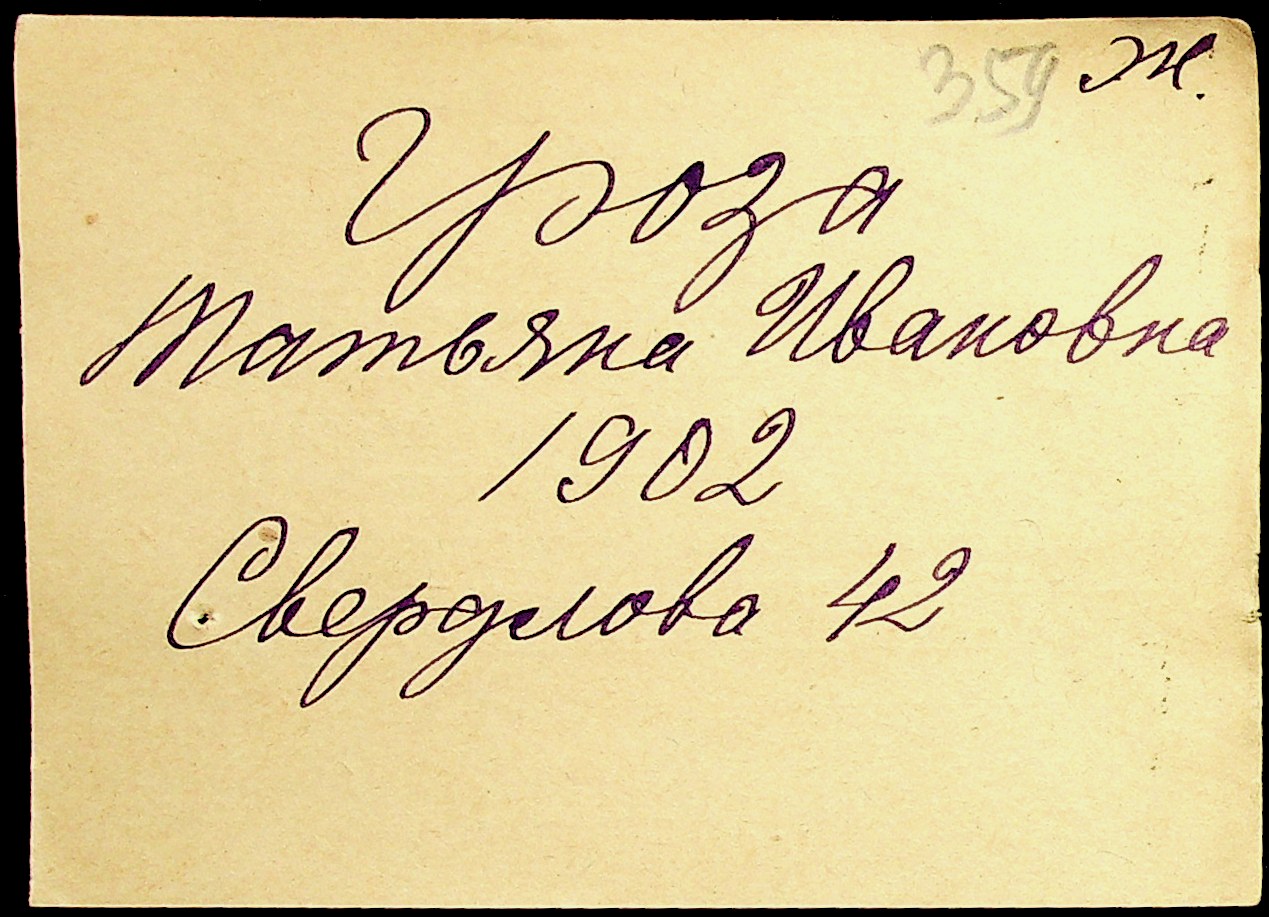 359 ж.
Гроза
Татьяна Ивановна
1902
Свердлова 42